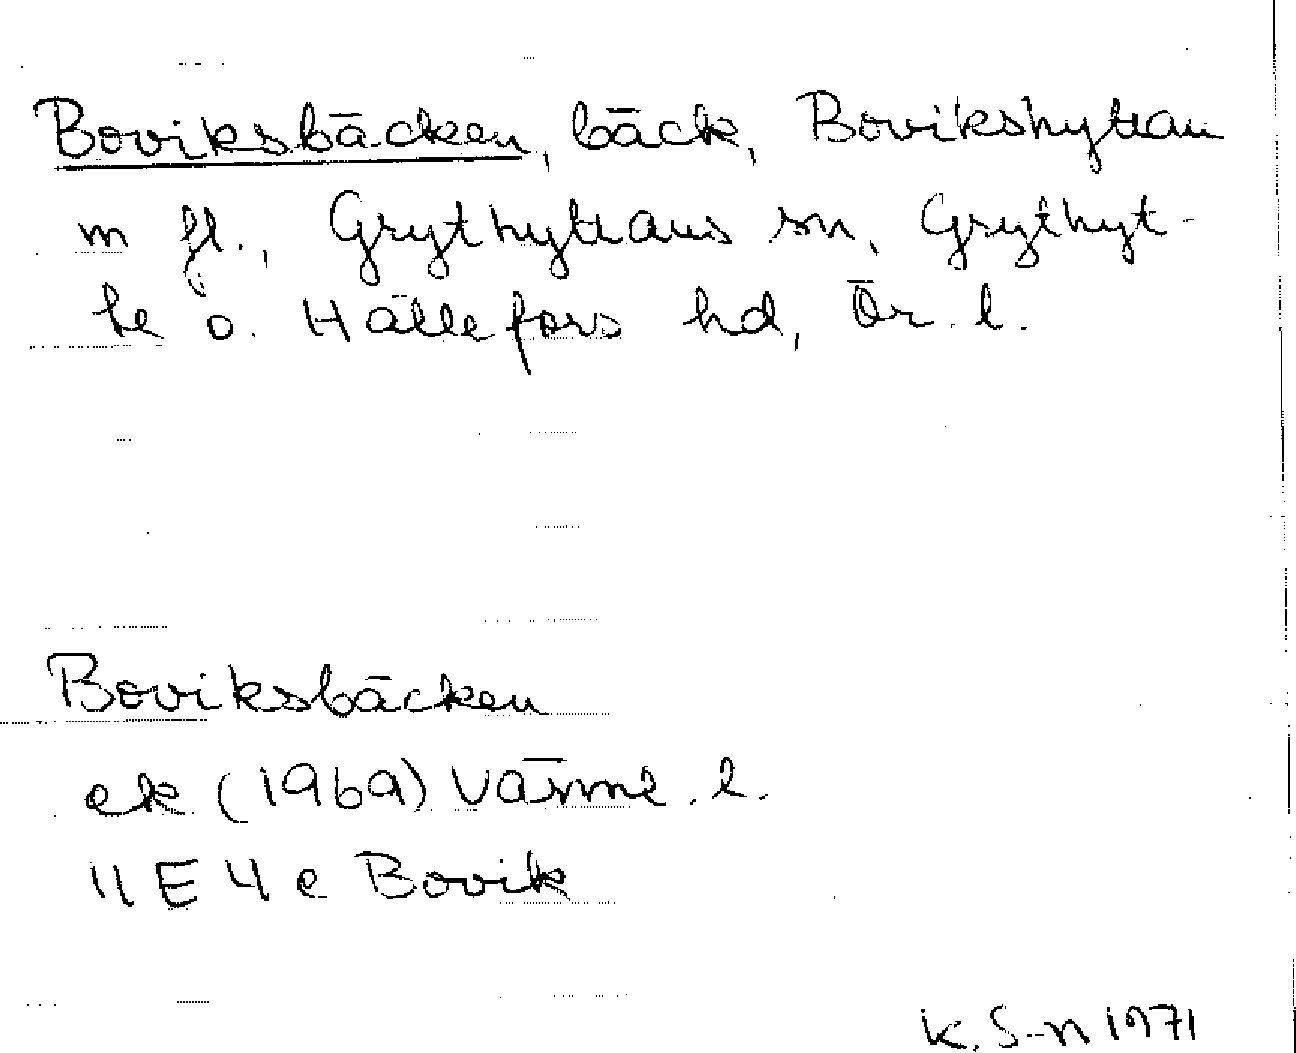 Boviksbäcken, bäck, Bovikshyttan
m fl., Grythyttans sn, Grythyt-
te o. Hällefors hd, Ör. l.
Boviksbäcken
ek (1969) Värml. l.
11E 4e Bovik
K. S-n 1971